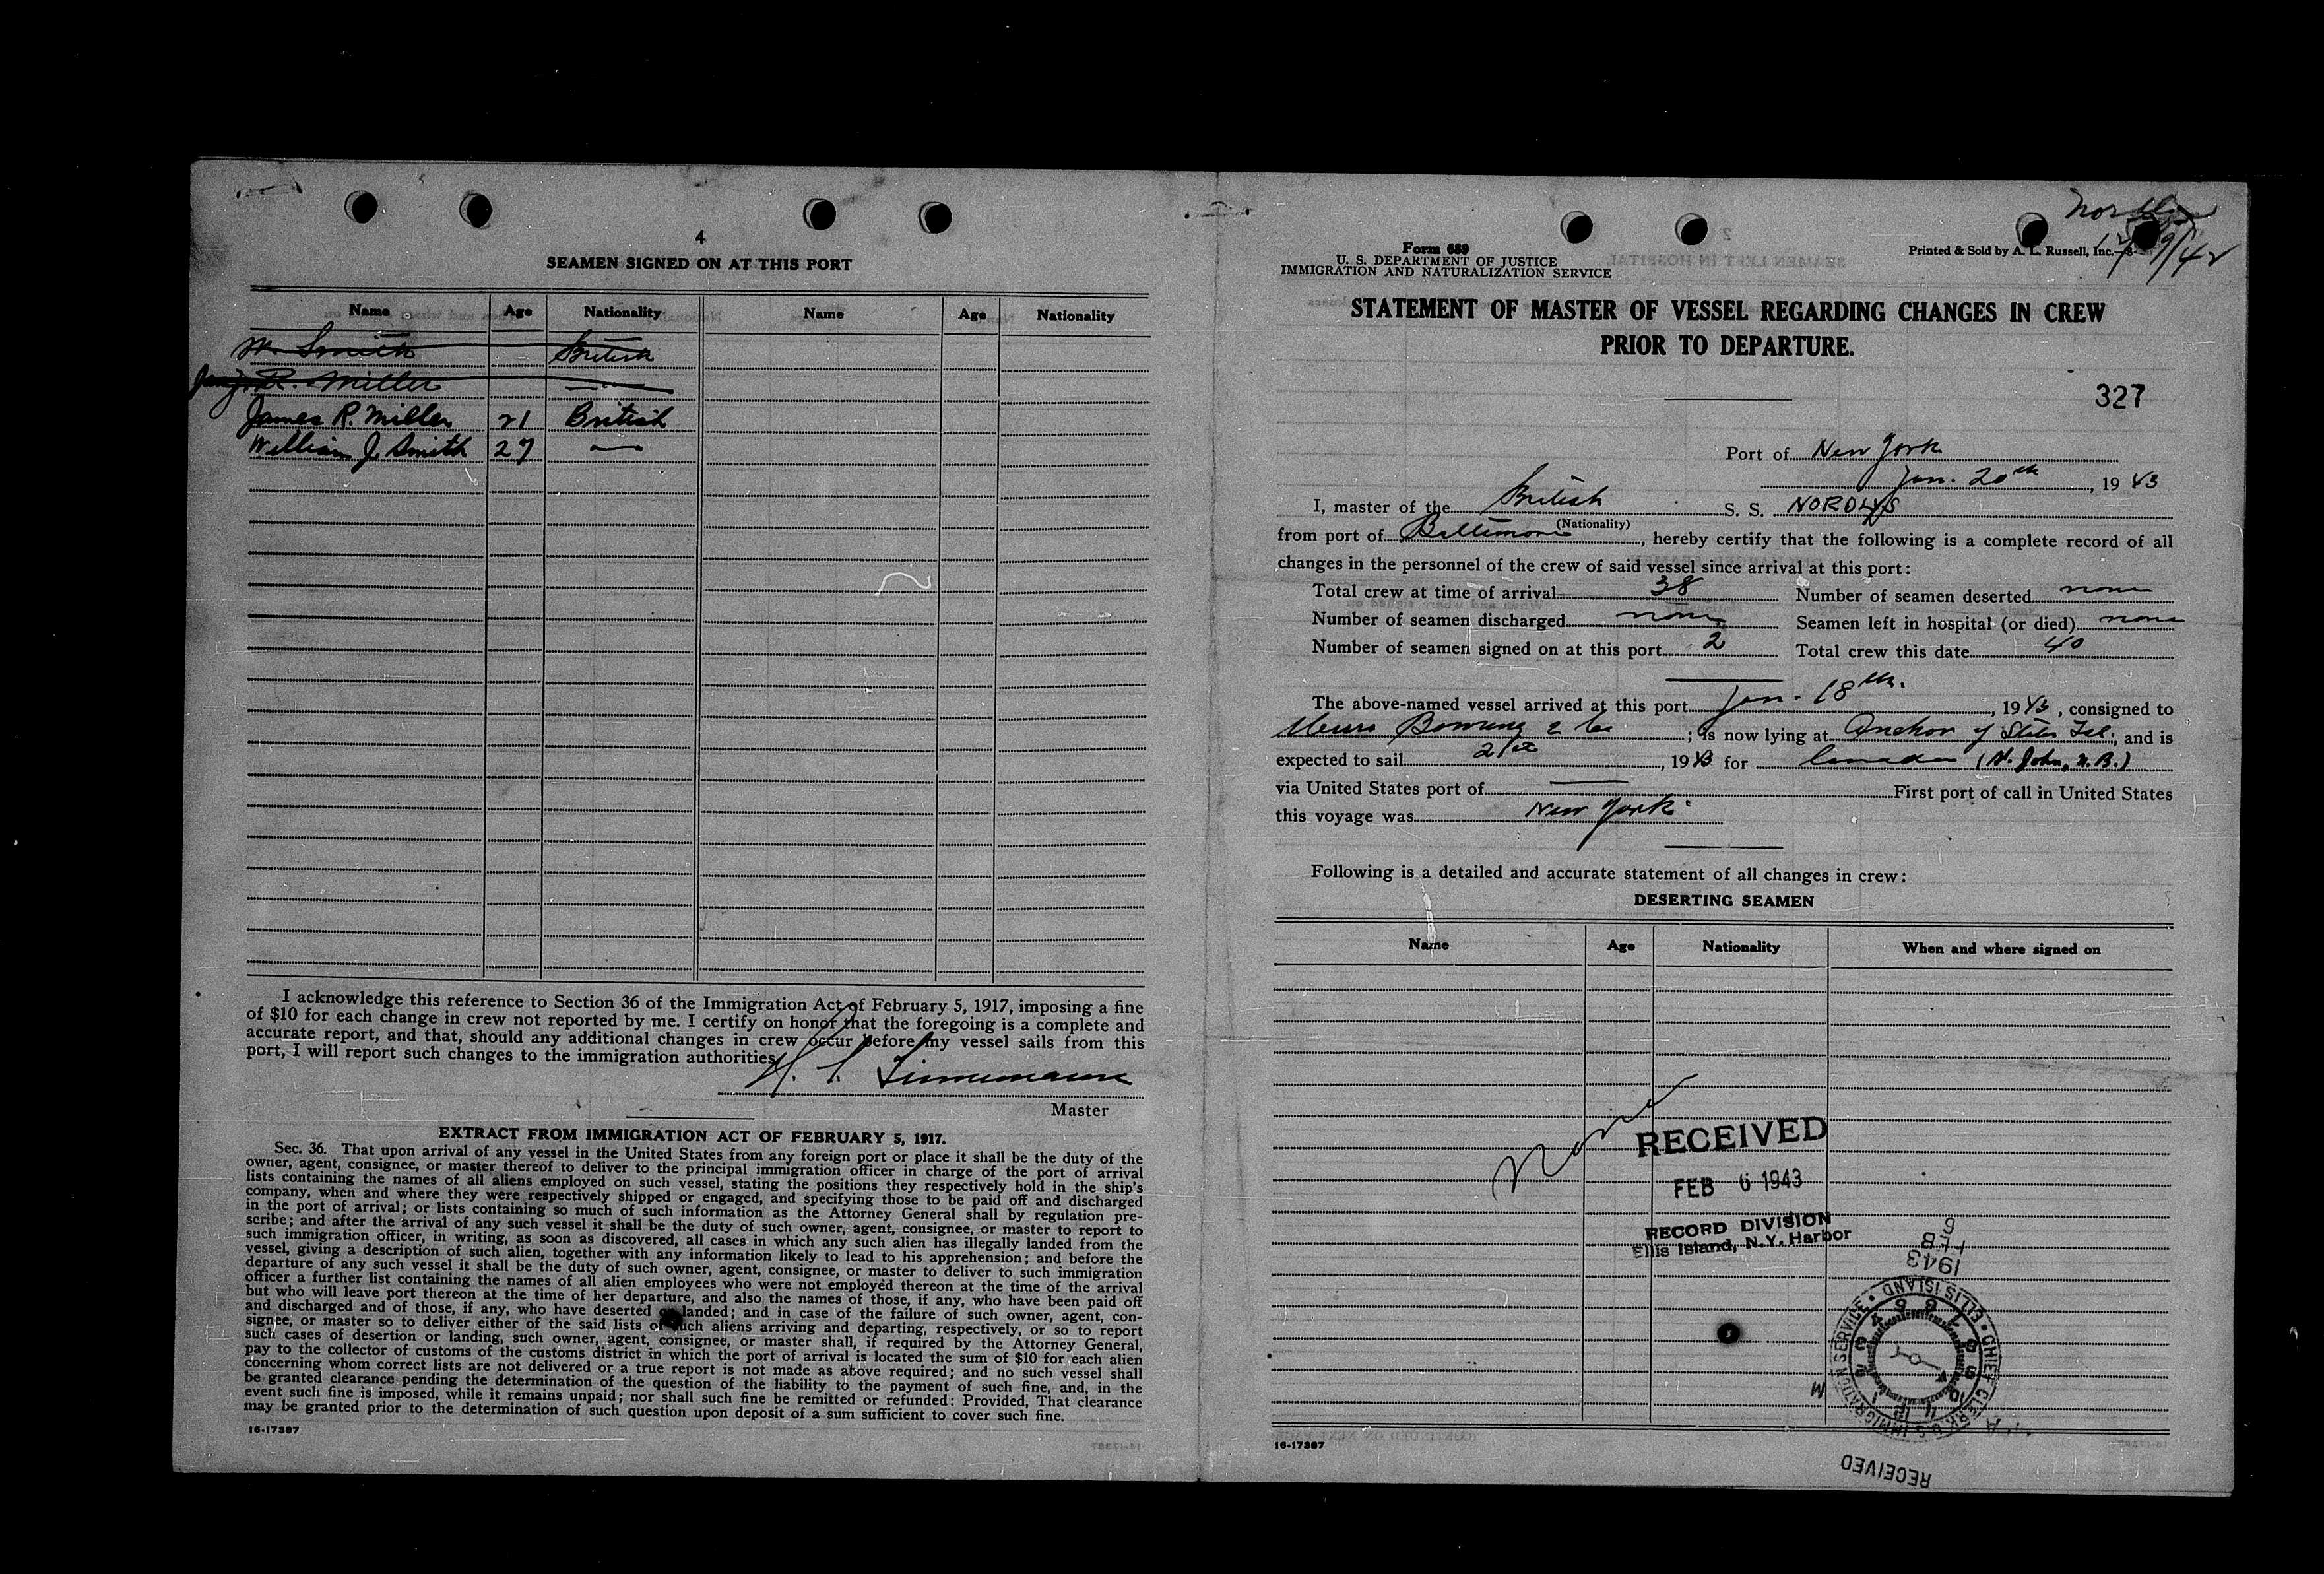 4
SEAMEN SIGNED ON AT THIS PORT
Name Age Nationality Name Age Nationality
W. Smith British
R. Miller
James R. Miller 21 British
William J. Smith 27 —
I acknowledge this reference to Section 36 of the Immigration Act of February 5, 1917, imposing a fine
of $10 for each change in crew not reported by me. I certify on honor that the foregoing is a complete and
accurate report, and that, should any additional changes in crew occur before my vessel sails from this
port, I will report such changes to the immigration authorities.
Master
EXTRACT FROM IMMIGRATION ACT OF FEBRUARY 5, 1917.
Sec. 36. That upon arrival of any vessel in the United States from any foreign port or place it shall be the duty of the
owner, agent, consignee, or master thereof to deliver to the principal immigration officer in charge of the port of arrival
lists containing the names of all aliens employed on such vessel, stating the positions they respectively hold in the ship's
company, when and where they were respectively shipped or engaged, and specifying those to be paid off and discharged
in the port of arrival; or lists containing so much of such information as the Attorney General shall by regulation pre-
scribe; and after the arrival of any such vessel it shall be the duty of such owner, agent, consignee, or master to report to
such immigration officer, in writing, as soon as discovered, all cases in which any such alien has illegally landed from the
vessel, giving a description of such alien, together with any information likely to lead to his apprehension; and before the
departure of any such vessel it shall be the duty of such owner, agent, consignee, or master to deliver to such immigration
officer a further list containing the names of all alien employees who were not employed thereon at the time of the arrival
but who will leave port thereon at the time of her departure, and also the names of those, if any, who have been paid off
and discharged and of those, if any, who have deserted or landed; and in case of the failure of such owner, agent, con-
signee, or master so to deliver either of the said lists of such aliens arriving and departing, respectively, or so to report
such cases of desertion or landing, such owner, agent, consignee, or master shall, if required by the Attorney General,
pay to the collector of customs of the customs district in which the port of arrival is located the sum of $10 for each alien
concerning whom correct lists are not delivered or a true report is not made as above required; and no such vessel shall
be granted clearance pending the determination of the question of the liability to the payment of such fine, and, in the
event such fine is imposed, while it remains unpaid; nor shall such fine be remitted or refunded: Provided, That clearance
may be granted prior to the determination of such question upon deposit of a sum sufficient to cover such fine.
16-17387
Form 689
U. S. DEPARTMENT OF JUSTICE
IMMIGRATION AND NATURALIZATION SERVICE
Printed & Sold by A. L. Russell, Inc.
STATEMENT OF MASTER OF VESSEL REGARDING CHANGES IN CREW
PRIOR TO DEPARTURE.
327
Port of New York
Jan. 20th, 1943
I, master of the British S. S. NORDLYS
(Nationality)
from port of Baltimore, hereby certify that the following is a complete record of all
changes in the personnel of the crew of said vessel since arrival at this port:
Total crew at time of arrival 38 Number of seamen deserted none
Number of seamen discharged none Seamen left in hospital (or died) none
Number of seamen signed on at this port 2 Total crew this date 40
The above-named vessel arrived at this port Jan. 18th. , 1943, consigned to
Messrs Bowring & Co ; is now lying at Anchor of Staten Isl., and is
expected to sail 21st, 1943 for Canada (St. John, N.B.)
via United States port of — First port of call in United States
this voyage was New York
Following is a detailed and accurate statement of all changes in crew:
DESERTING SEAMEN
Name Age Nationality When and where signed on
None
RECEIVED
FEB 6 1943
RECORD DIVISION
Ellis Island, N.Y. Harbor
FEB 6
1943
ELLIS ISLAND · CHIEF CLERK U S IMMIGRATION SERVICE ·
RECEIVED
16-17387